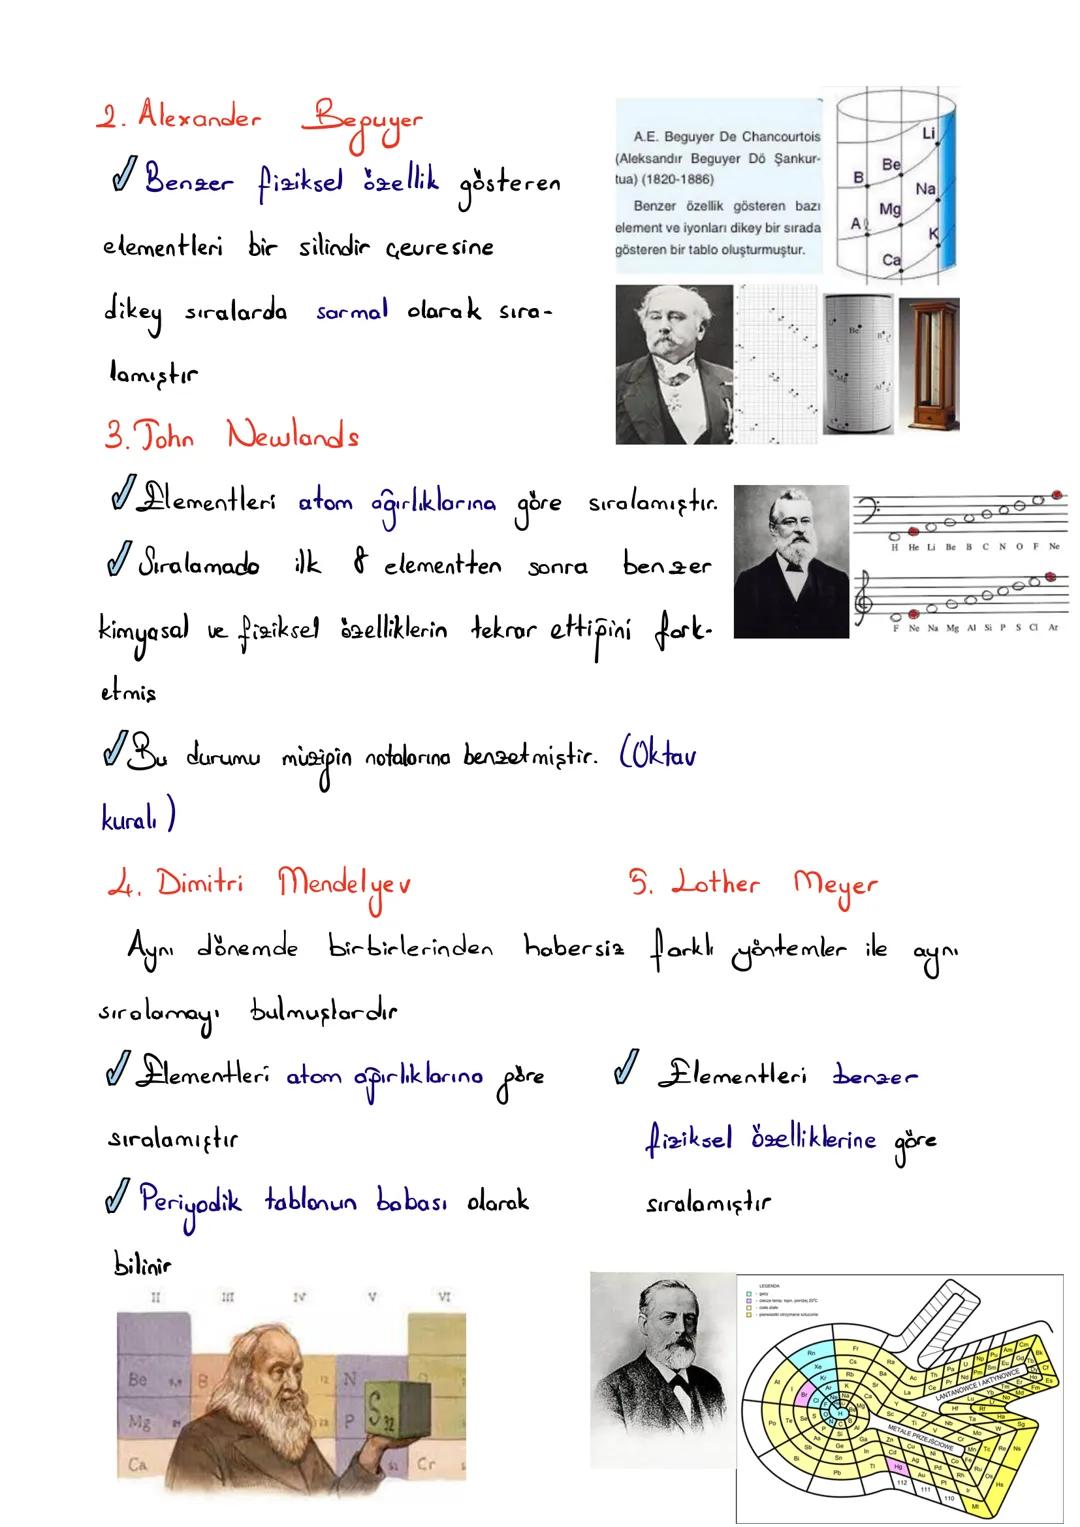 2. Alexander Beguyer
✓ Benzer fiziksel özellik gösteren
elementleri bir silindir çevresine
dikey sıralarda sarmal olarak sıra-
lamıştır
A.E. Beguyer De Chancourtois
(Aleksandır Beguyer Dö Şankur-
tua) (1820-1886)
Benzer özellik gösteren bazı
element ve iyonları dikey bir sırada
gösteren bir tablo oluşturmuştur.
Li
Be
B
Na
Mg
Al
K
Ca
3. John Newlands
✓ Elementleri atom ağırlıklarına göre sıralamıştır.
✓ Sıralamada ilk 8 elementten sonra benzer
kimyasal ve fiziksel özelliklerin tekrar ettiğini fark-
etmiş
✓ Bu durumu müziğin notalarına benzetmiştir. (Oktav
kuralı)
H He Li Be B C N O F Ne
F Ne Na Mg Al Si P S Cl Ar
4. Dimitri Mendelyev
5. Lother Meyer
Aynı dönemde birbirlerinden habersiz farklı yöntemler ile aynı
sıralamayı bulmuşlardır
✓ Elementleri atom ağırlıklarına göre
sıralamıştır
✓ Periyodik tablonun babası olarak
bilinir
✓ Elementleri benzer
fiziksel özelliklerine göre
sıralamıştır
II III IV V VI
Be B 12 N
Mg P S 32
Ca Cr
LEGENDA
LANTANOWCE I AKTYNOWCE
METALE PRZEJŚCIOWE